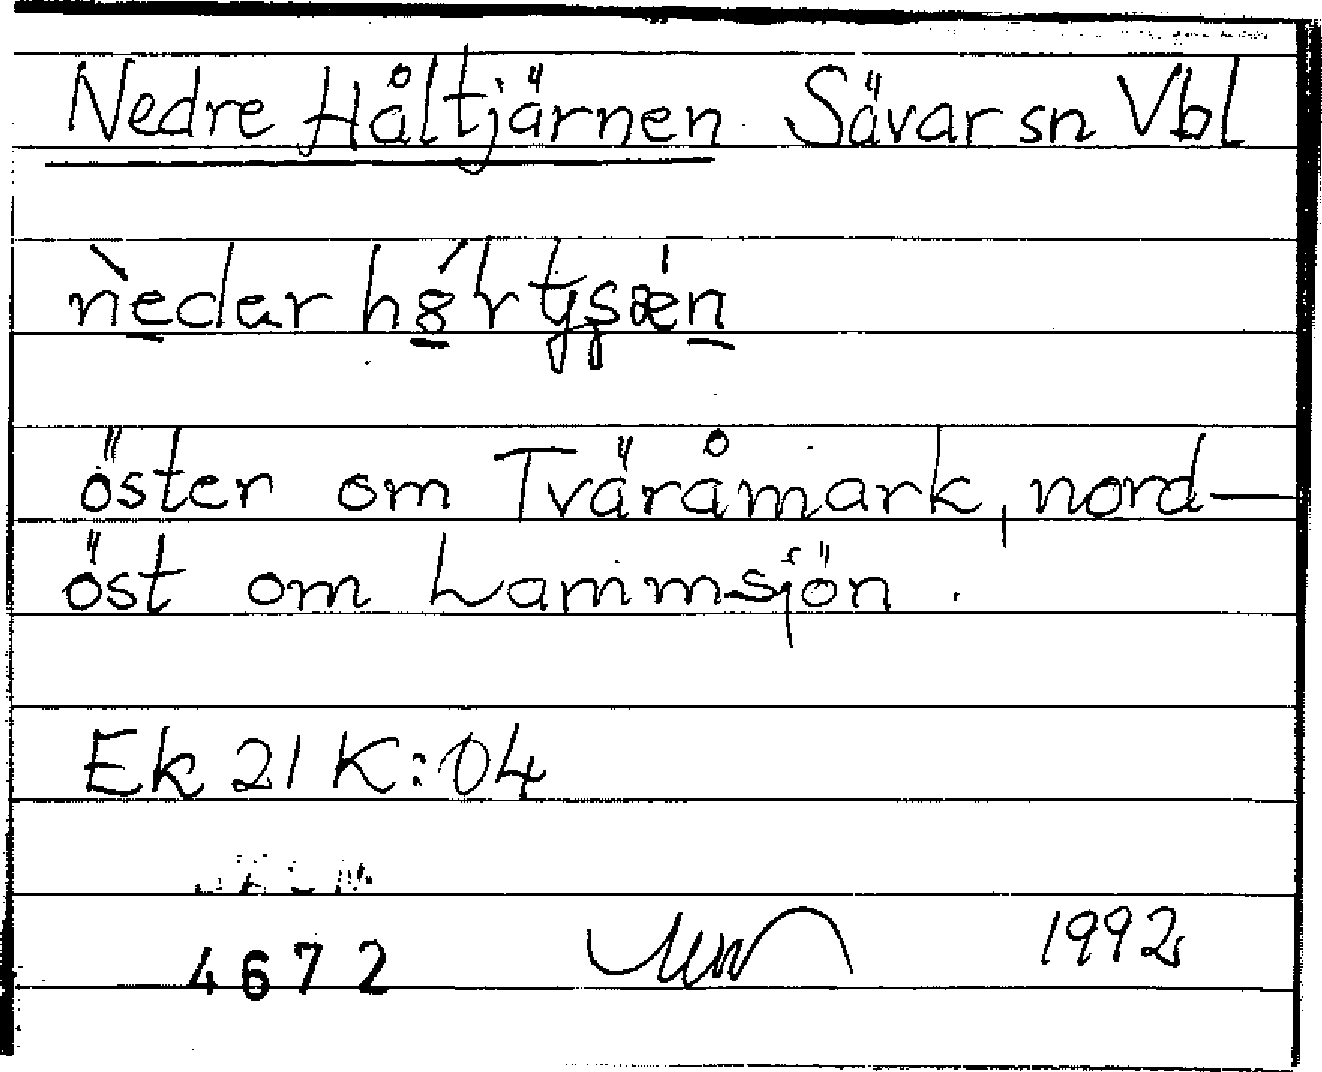 Nedre Håltjärnen Sävar sn Vbl
öster om Tväråmark, nord-
öst om Lammsjön.
Ek 21 K:04
4672 1992